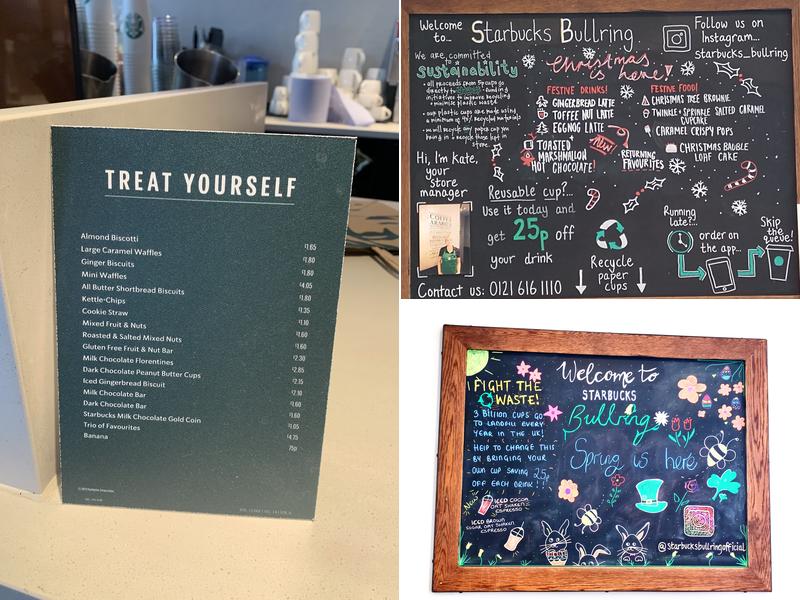 TREAT YOURSELF
Almond Biscotti
Large Caramel Waffles
Ginger Biscuits
Mini Waffles
All Butter Shortbread Biscuits
Kettle Chips
Cookie Straw
Mixed Fruit & Nuts
Roasted & Salted Mixed Nuts
Gluten Free Fruit & Nut Bar
Milk Chocolate Florentines
Dark Chocolate Peanut Butter Cups
Iced Gingerbread Biscuit
Milk Chocolate Bar
Dark Chocolate Bar
Starbucks Milk Chocolate Gold Coin
Trio of Favourites
Banana
£1.65
£1.80
£1.80
£4.05
£1.80
£1.35
£1.10
£1.60
£1.60
£2.30
£2.85
£2.15
£2.10
£1.60
£1.60
£1.05
£4.75
75p
Welcome to..
Starbucks Bullring.
Follow us on
Instagram...
Starbucks_bullring
We are committed
to
sustainability
• all proceeds from 5p cups go
directly to
funding
initiatives to improve recycling
+ minimise plastic waste
• our plastic cups are made using
a minimum of
recycled materials
• we will recycle any paper cup you
bring in + recycle those left in
store.
Christmas
is here!
FESTIVE DRINKS!
GINGERBREAD LATTE
TOFFEE NUT LATTE
EGGNOG LATTE
TOASTED
MARSHMALLOW
HOT CHOCOLATE!
NEW
RETURNING
FAVOURITES
FESTIVE FOOD!
CHRISTMAS TREE BROWNIE
TWINKLE + SPRINKLE SALTED CARAMEL
CUPCAKE
CARAMEL CRISPY POPS
CHRISTMAS BAUBLE
LOAF CAKE
Hi, I'm Kate,
your
store
manager
Reusable cup?...
Use it today and
get 25p off
your drink
Recycle
paper
cups
Running
late?...
order on
the app...
Skip
the
queue!
Contact us: 0121 616 1110
FIGHT THE
WASTE!
3 BILLION CUPS GO
TO LANDFILL EVERY
YEAR IN THE UK!
HELP TO CHANGE THIS
BY BRINGING YOUR
OWN CUP SAVING 25p
OFF EACH DRINK!!
New
ICED COCOA
OAT SHAKEN
ESPRESSO
ICED BROWN
SUGAR OAT SHAKEN
ESPRESSO
Welcome to
STARBUCKS
Bullring
Spring is here
@starbucksbullringofficial